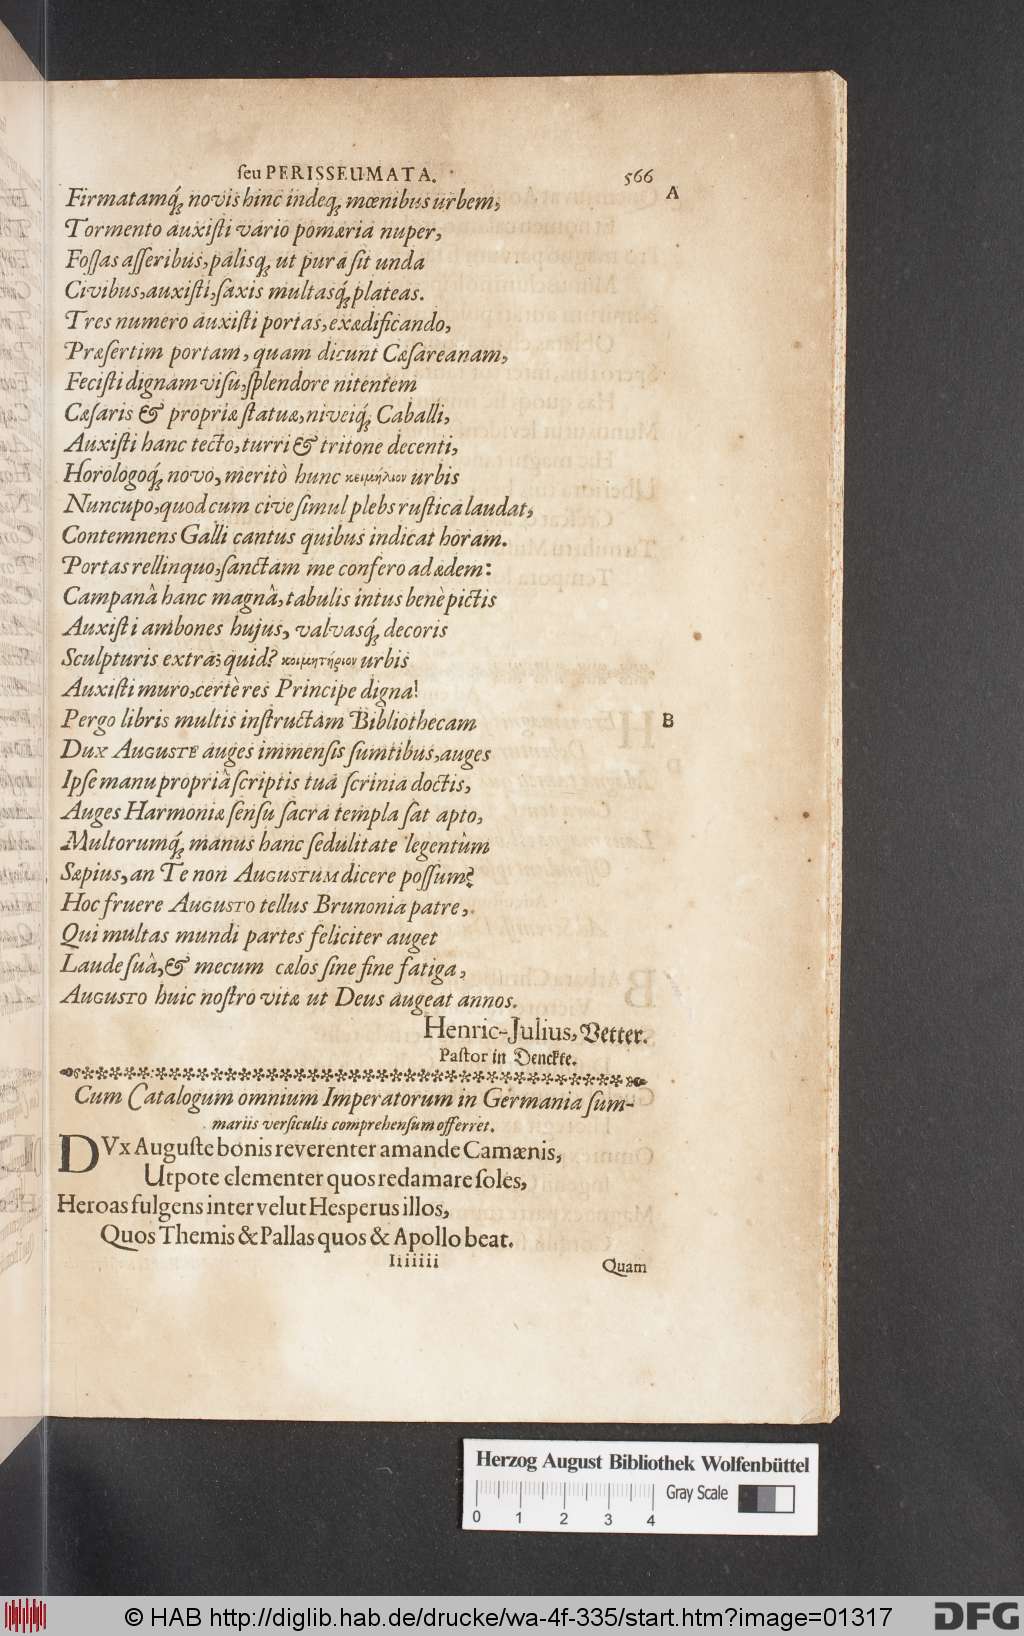 ſeu PERISSEUMATA. 566
Firmatamq́; novis hinc índeq; mœnibus urbem, A
Tormento auxiſti vario pomæria nuper,
Foſſas aſſeribus, pâlisq; ut pura ſit unda
Civibus, auxiſti, ſaxis multasq́; plateas.
Tres numero auxiſti portas, exædificando,
Præſertim portam, quam dicunt Cæſareanam,
Feciſti dignam viſu, ſplendore nitentem
Cæſaris & propriæ ſtatuæ, niveiq́; Caballi,
Auxiſti hanc tecto, turri & tritone decenti,
Horologoq́; novo, meritò hunc κειμήλιον urbis
Nuncupo, quod cum cive ſimul plebs ruſtica laudat,
Contemnens Galli cantus quibus indicat horam.
Portas rellinquo, ſanctam me confero ad ædem:
Campanâ hanc magnâ, tabulis intus benè pictis
Auxiſti ambones hujus, valvasq́; decoris
Sculpturis extra; quid? κοιμητήριον urbis
Auxiſti muro, certè res Principe digna!
Pergo libris multis inſtructam Bibliothecam B
Dux AUGUSTE auges immenſis ſumtibus, auges
Ipſe manu propriâ ſcriptis tua ſcrinia doctis,
Auges Harmoniæ ſenſu ſacra templa ſat apto,
Multorumq́; manus hanc ſedulitate legentùm
Sæpius, an Te non AUGUSTUM dicere poſſum?
Hoc fruere AUGUSTO tellus Brunonia patre,
Qui multas mundi partes feliciter auget
Laude ſuâ, & mecum cælos ſine fine fatiga,
AUGUSTO huic noſtro vitæ ut Deus augeat annos.
Henric-Julius, Vetter.
Paſtor in Denckte.
Cum Catalogum omnium Imperatorum in Germania ſum-
mariis verſiculis comprehenſum offerret.
DVx Auguſte bonis reverenter amande Camænis,
Utpote clementer quos redamare ſoles,
Heroas fulgens inter velut Heſperus illos,
Quos Themis & Pallas quos & Apollo beat.
Iiiiiii Quam
Herzog August Bibliothek Wolfenbüttel
Gray Scale
0 1 2 3 4
© HAB http://diglib.hab.de/drucke/wa-4f-335/start.htm?image=01317
DFG